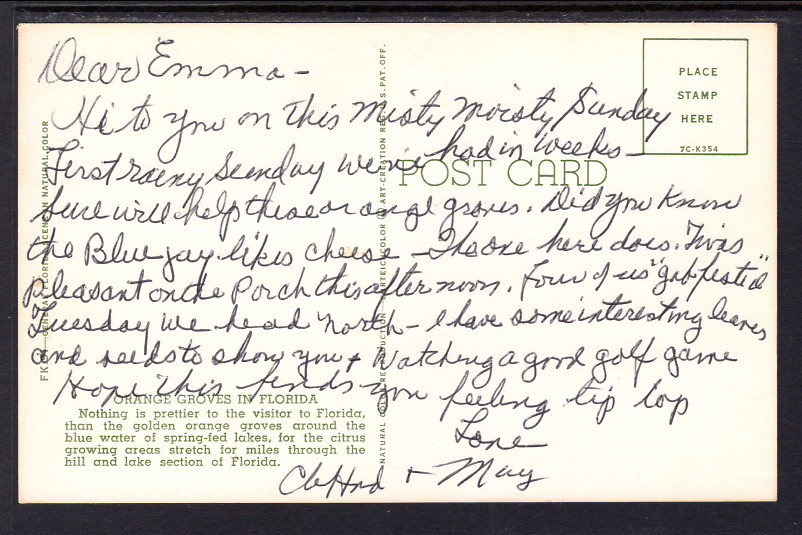 Dear Emma -
Hi to you on this Misty Moisty Sunday
First rainy Sunday we've had in weeks -
Sure will help these orange groves. Did you know
the Blue jay likes cheese - The one here does. 'Twas
Pleasant on the Porch this afternoon. Four of us "gabfested"
Tuesday we head North - I have some interesting leaves
and seeds to show you + Watching a good golf game
Hope this finds you feeling tip top
Love
Clifford + May
PLACE
STAMP
HERE
7C-K354
POST CARD
ORANGE GROVES IN FLORIDA
Nothing is prettier to the visitor to Florida,
than the golden orange groves around the
blue water of spring-fed lakes, for the citrus
growing areas stretch for miles through the
hill and lake section of Florida.